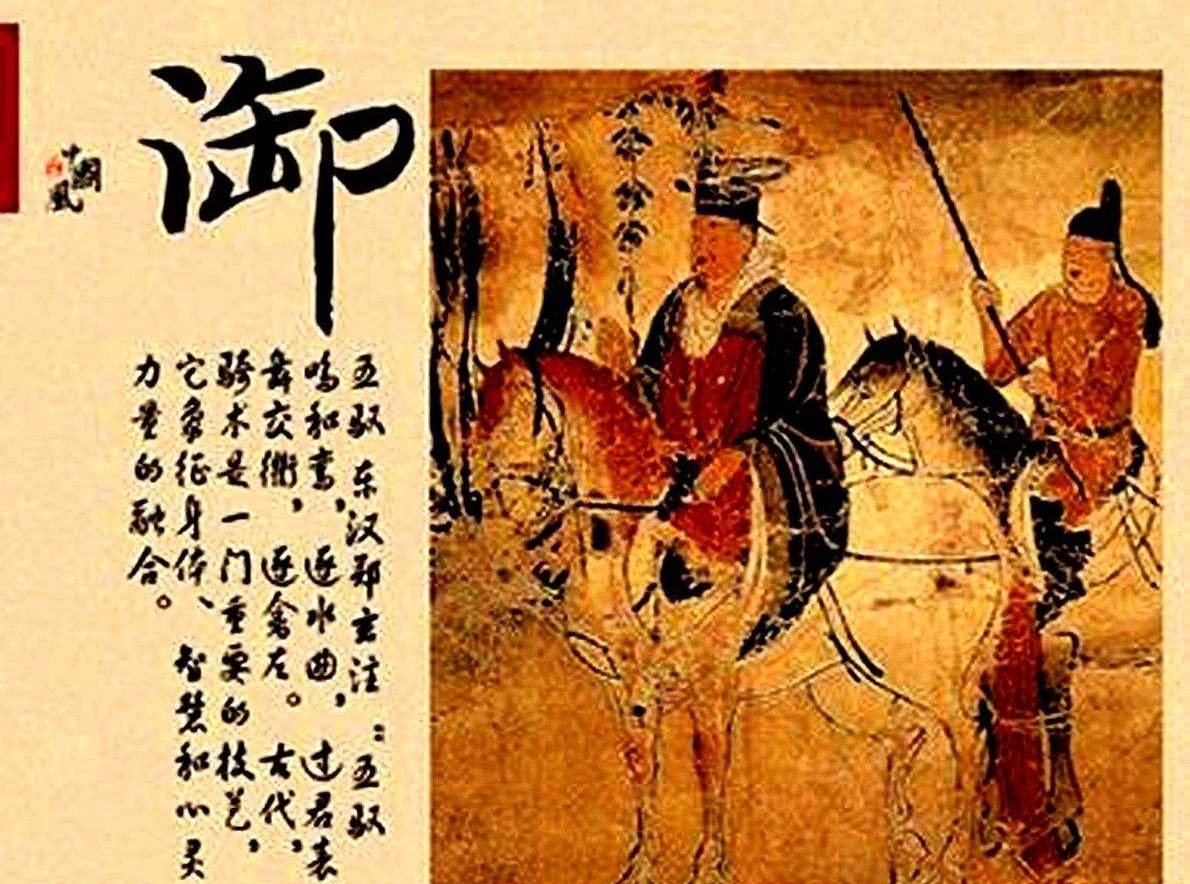 御
中国风
五驭 东汉郑玄注：五驭
鸣和鸾，逐水曲，过君表
舞交衢，逐禽左。古代，
骑术是一门重要的技艺，
它象征身体、智慧和心灵
力量的融合。